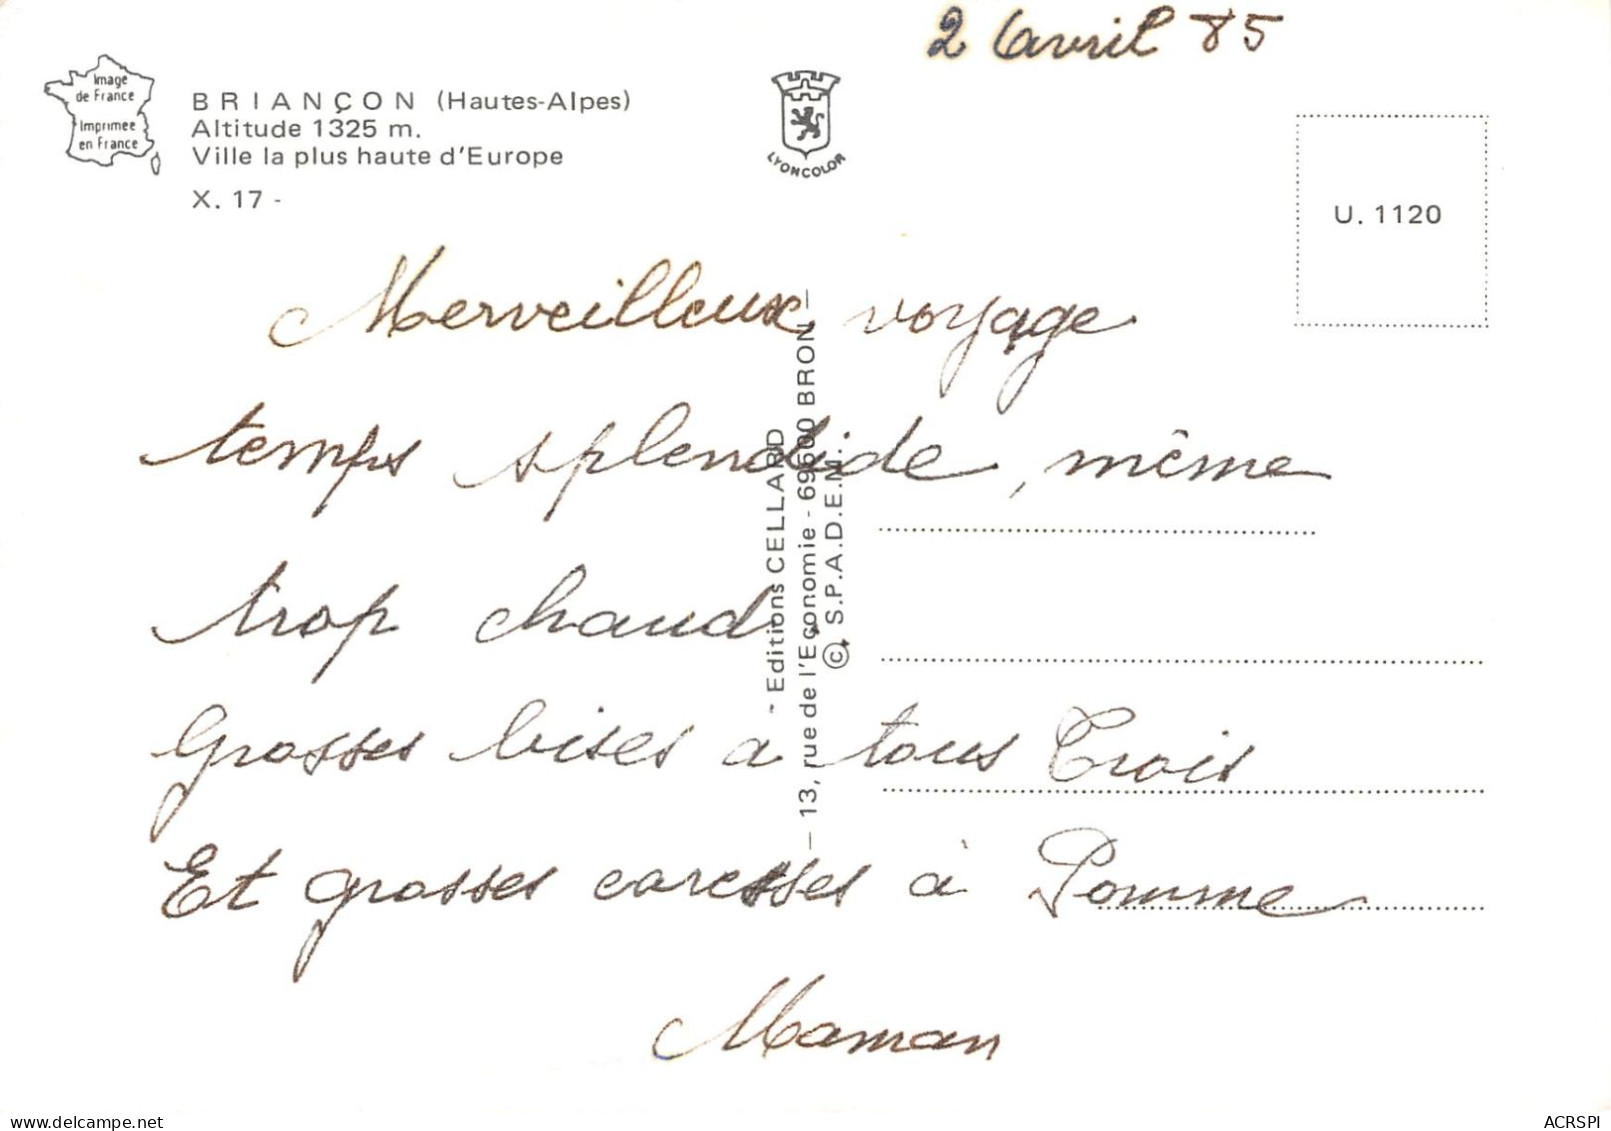 2 avril 85
Image
de France
Imprimee
en France
BRIANÇON (Hautes-Alpes)
Altitude 1325 m.
Ville la plus haute d'Europe
X. 17 -
LYONCOLOR
U. 1120
Merveilleux voyage
temps splendide, même
trop chaud.
Grosses bises a tous Trois
Et grosses caresses à Pomme
Maman
- Editions CELLARD
— 13, rue de l'Economie - 69500 BRON —
© S.P.A.D.E.M.
ACRSPI
delcampe.net